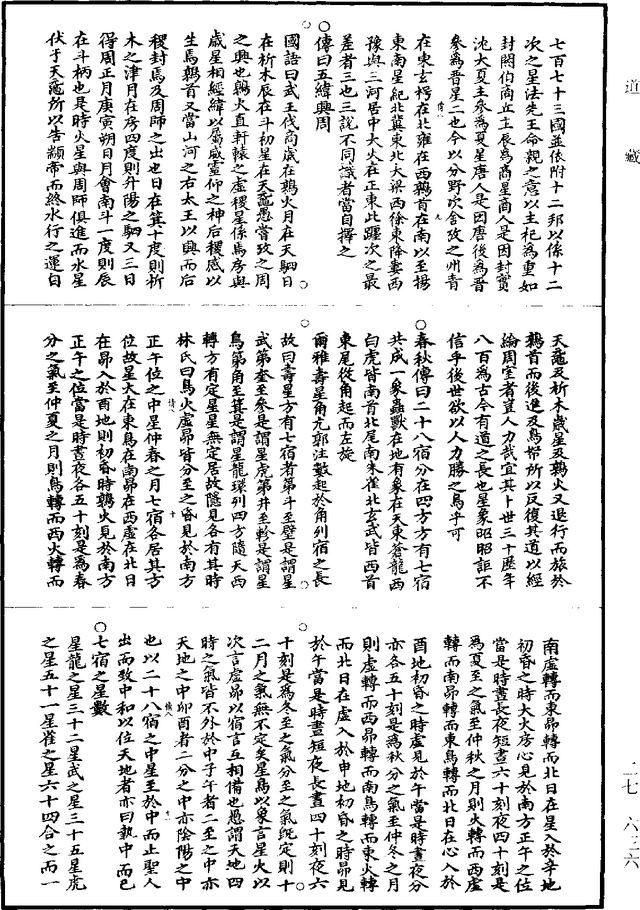 道藏
七百七十三國並依附十二邦以係十二
次之星法先王命親之意以主祀為重如
封閼伯商丘主辰為商星商人是因封實
沈大夏主參為夏星唐人是因唐後為晉
參為晉星二也今以分野次舍攷之州青
在東玄枵在北雍在西鶉首在南以至揚
東南星紀北冀東北大梁西徐東降婁西
豫與三河居中大火在正東此躔次之最
差者三也三說不同識者當自擇之
○傳曰五緯興周
國語曰武王伐商歲在鶉火月在天駟日
在析木辰在斗初星在天黿愚嘗攷之周
之興也鶉火直軒轅之虛稷星係焉房與
歲星相經緯以屬威靈仰之神后稷感以
生焉鶉首又當山河之右太王以興而后
稷封焉及周師之出也日在箕十度則析
木之津月在房四度則升陽之駟又三日
得周正月庚寅朔日月會南斗一度則辰
在斗柄也是時火星與周師俱進而水星
伏于天黿所以告顓帝而終水行之運自
天黿及析木歲星及鶉火又退行而旅於
鶉首而後進及鳥帑所以反復其道以經
綸周室者豈人力哉宜其卜世三十歷年
八百為古今有道之長也星象昭昭詎不
信乎後世欲以人力勝之烏乎可
○春秋傳曰二十八宿分在四方方有七宿
共成一象蟲獸在地有象在天東蒼龍西
白虎皆南首北尾南朱雀北玄武皆西首
東尾從角起而左旋
爾雅壽星角亢郭注數起於角列宿之長
故曰壽星方有七宿者第斗至壁是謂星
武第奎至參是謂星虎第井至軫是謂星
鳥第角至箕是謂星龍環列四方隨天西
轉方有定星星無定居故隱見各有其時
林氏曰鳥火虛昴皆分至之昏見於南方
正午位之中星仲春之月七宿各居其方
位故星火在東鳥在南昴在西虛在北日
在昴入於酉地則初昏時鶉火見於南方
正午之位當是時晝夜各五十刻是為春
分之氣至仲夏之月則鳥轉而西火轉而
南虛轉而東昴轉而北日在星入於辛地
初昏之時大火房心見於南方正午之位
當是時晝長夜短晝六十刻夜四十刻是
為夏至之氣至仲秋之月則火轉而西虛
轉而南昴轉而東鳥轉而北日在心入於
酉地初昏之時虛見於午當是時晝夜分
亦各五十刻是為秋分之氣至仲冬之月
則虛轉而西昴轉而南鳥轉而東火轉
而北日在虛入於申地初昏之時昴見
於午當是時晝短夜長晝四十刻夜六
十刻是為冬至之氣分至之氣既定則十
二月之氣無不定矣星鳥以象言星火以
次言虛昴以宿言互相備也愚謂天地四
時之氣皆不外於中子午者二至之中亦
天地之中卯酉者二分之中亦陰陽之中
也以二十八宿之中星至於中而止聖人
出而致中和以位天地者亦曰執中而已
○七宿之星數
星龍之星三十二星武之星三十五星虎
之星五十一星雀之星六十四合之而一
二七 六三六